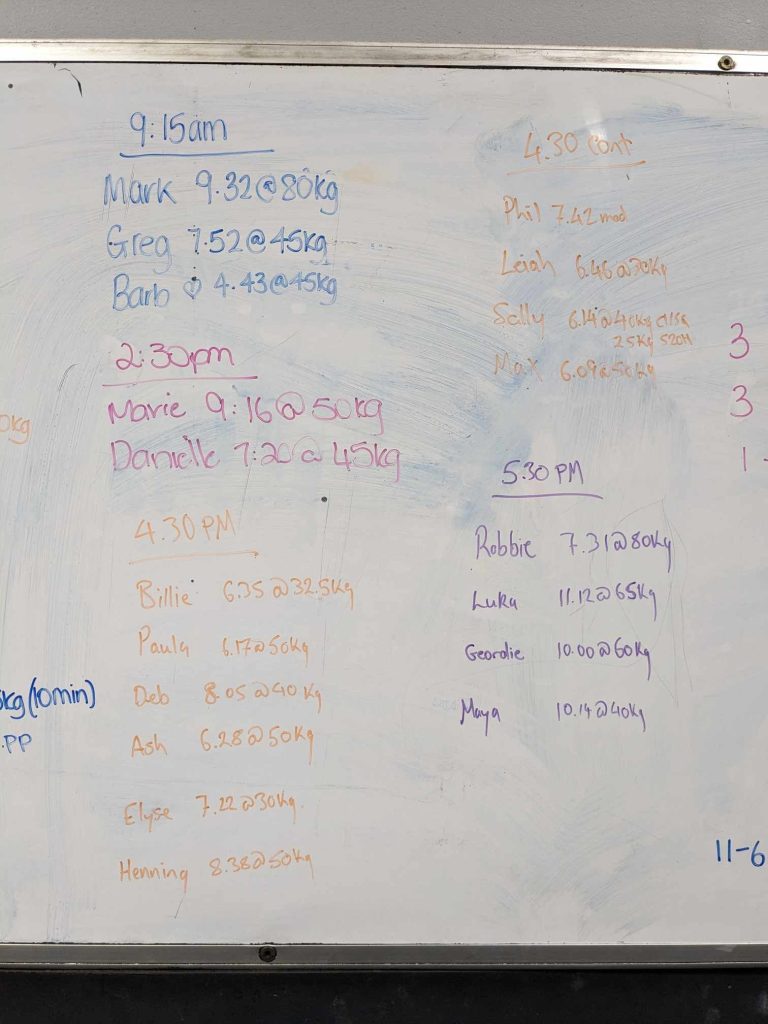 9:15am
Mark 9.32@80kg
Greg 7.52@45kg
Barb ♡ 4.43@45kg
2:30pm
Marie 9:16@50kg
Danielle 7:20@45kg
4.30 PM
Billie 6.35@32.5kg
Paula 6.17@50kg
Deb 8.05@40kg
Ash 6.28@50kg
Elyse 7.22@30kg
Henning 8.38@50kg
4.30 Cont
Phil 7.42 mod
Leiah 6.46@30kg
Sally 6.14@40kg
25kg S2OH
Max 6.09@50kg
5.30 PM
Robbie 7.31@80kg
Luka 11.12@65kg
Geordie 10.00@60kg
Maya 10.14@40kg
0kg
kg (10min)
.PP
3
3
1-
11-6